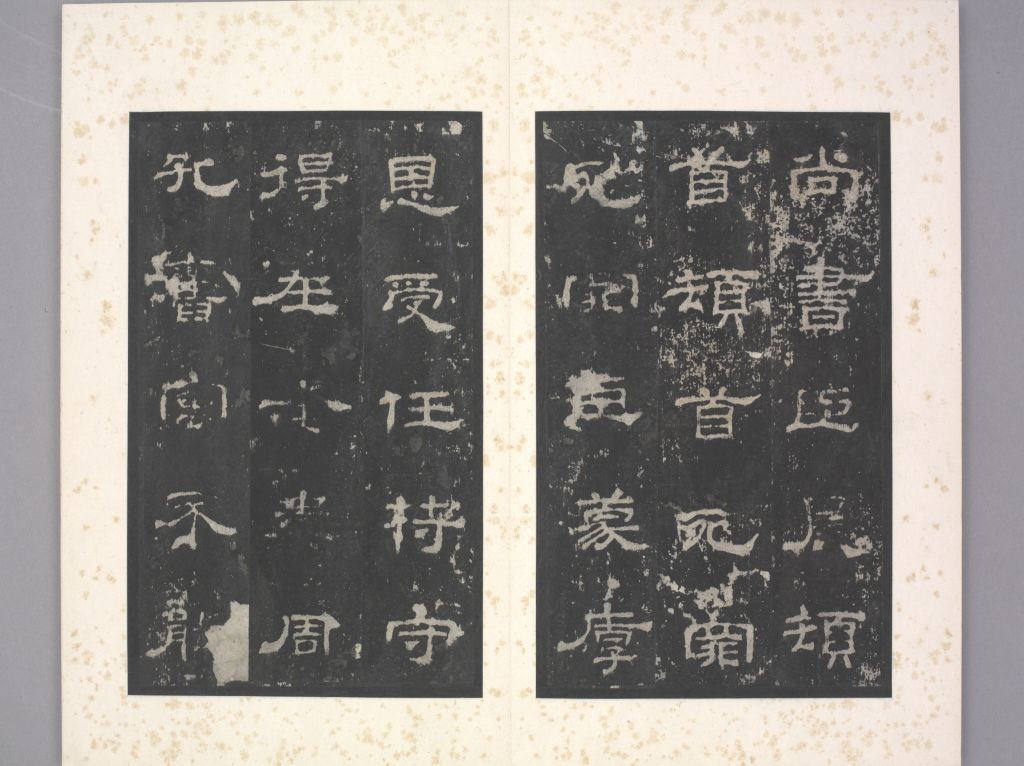 尚書臣晨頓
首頓首死罪
死罪臣蒙厚
恩受任符守
得在奎婁周
孔舊寓不能